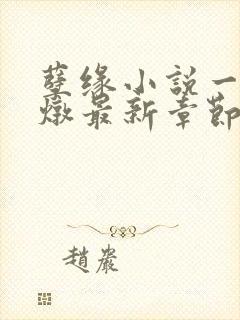 孽缘小説一
燉最新章節
趙嚴